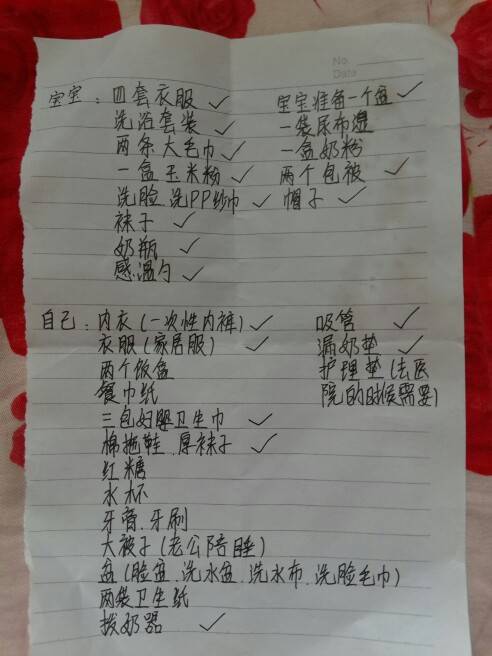 No.
Date
宝宝：四套衣服✓ 宝宝准备一个盆✓
洗浴套装✓ 一袋尿布湿
两条大毛巾✓ 一盒奶粉
一盒玉米粉✓ 两个包被✓
洗脸 洗PP纱巾✓ 帽子✓
袜子✓
奶瓶✓
感温勺✓
自己：内衣(一次性内裤)✓ 吸管✓
衣服(家居服)✓ 漏奶垫✓
两个饭盒 护理垫(去医
餐巾纸 院的时候需要)
三包妇婴卫生巾✓
棉拖鞋.厚袜子✓
红糖
水杯
牙膏.牙刷
大被子(老公陪睡)
盆(脸盆.洗水盆.洗水布.洗脸毛巾)
两袋卫生纸
拔奶器✓